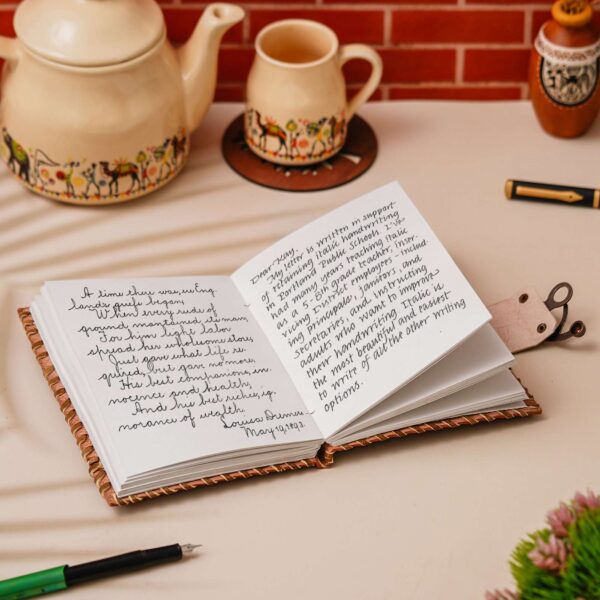 A time there was, ere Eng
lands griefs began,
When every rude of
ground maintained its man,
For him light labor
spread her wholesome store,
Just gave what life re
quired, but gave no more.
His best companions, in
nocence and health,
And his best riches, ig
norance of wealth.
Louisa Dreher
May 19, 1893.
Dear Kay,
My letter is written in support
of retaining italic handwriting
in Portland Public Schools. I've
had many years teaching italic
as a 5-8th grade teacher, inser-
vicing District employers - includ-
ing principals, janitors, and
secretaries, and instructing
adults who want to improve
their handwriting. Italic is
the most beautiful and easiest
to write of all the other writing
options.